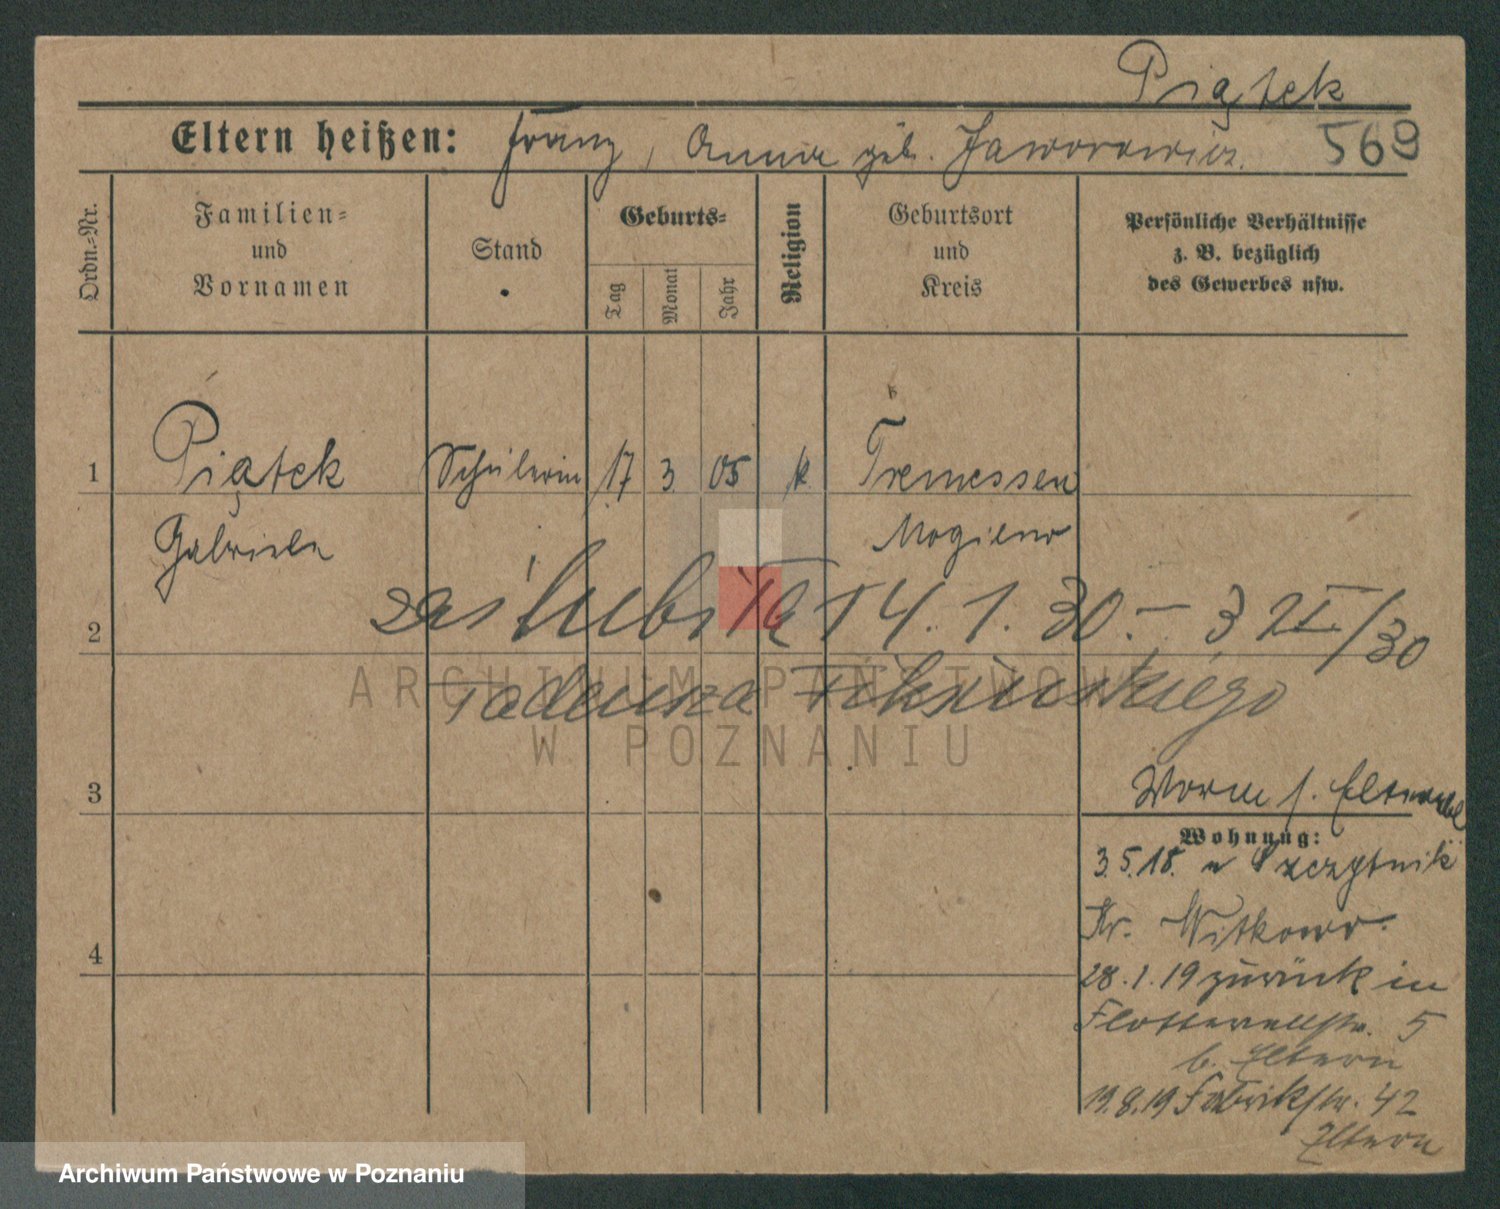 Piątek
Eltern heißen: Franz, Anna geb. Jaworowicz. 569
Ordn.-Nr.
Familien-
und
Vornamen
Stand
Geburts-
Tag
Monat
Jahr
Religion
Geburtsort
und
Kreis
Persönliche Verhältnisse
z. B. bezüglich
des Gewerbes usw.
1 Piątek Schülerin 17 3 05 k. Tremessen
Gabriela Mogilno
zaślubiła 14. 1. 30. – 3 /30
2
Tadeusza
ARCHIWUM PAŃSTWOWE
W POZNANIU
3
Worm s. Eltern
Wohnung:
3.5.18. n Szczytnik
Kr. Witkowo.
4
28.1.19 zurück in
Flottwellstr. 5
b. Eltern
19.8.19 Fabrikstr. 42
Eltern
Archiwum Państwowe w Poznaniu